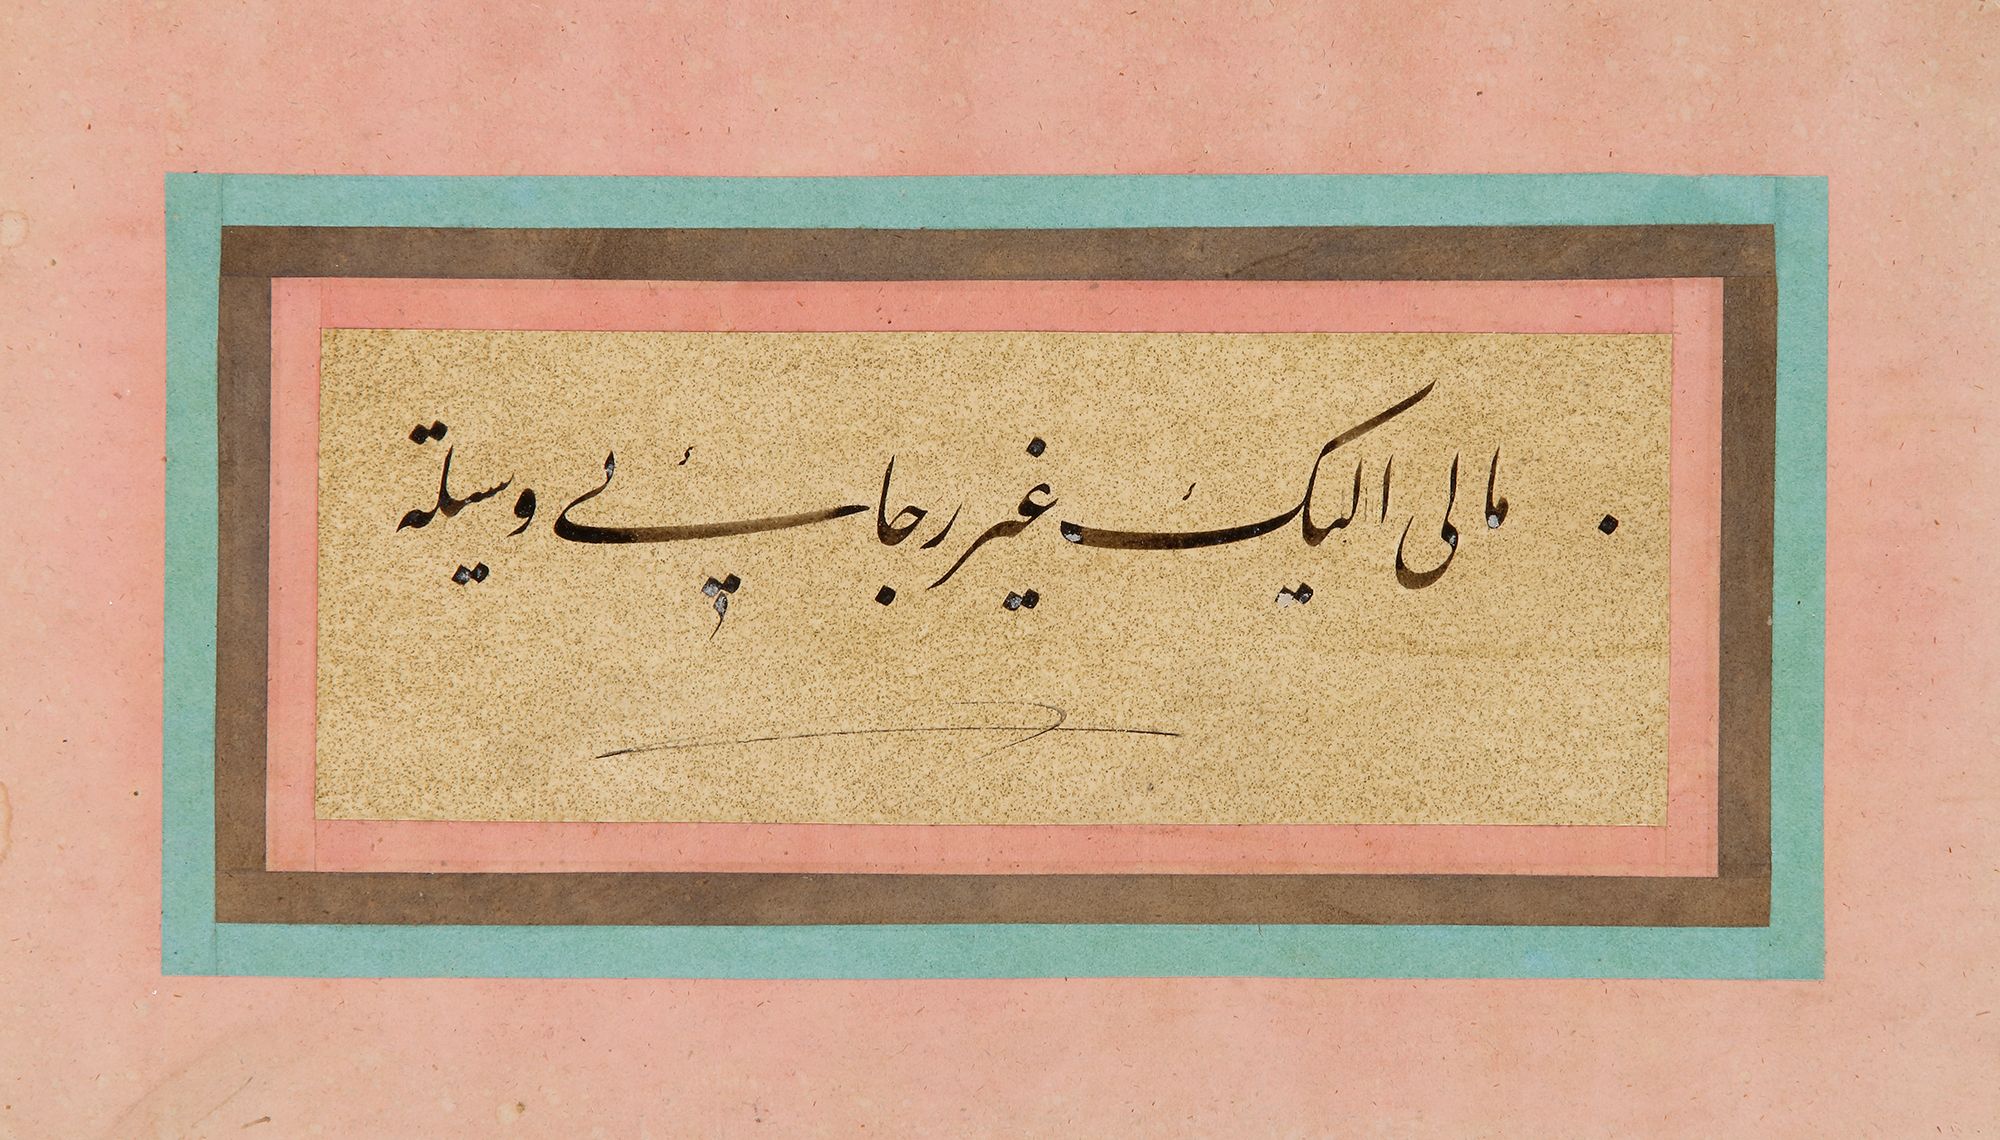 مالی الیک غیر رجائی وسیلة